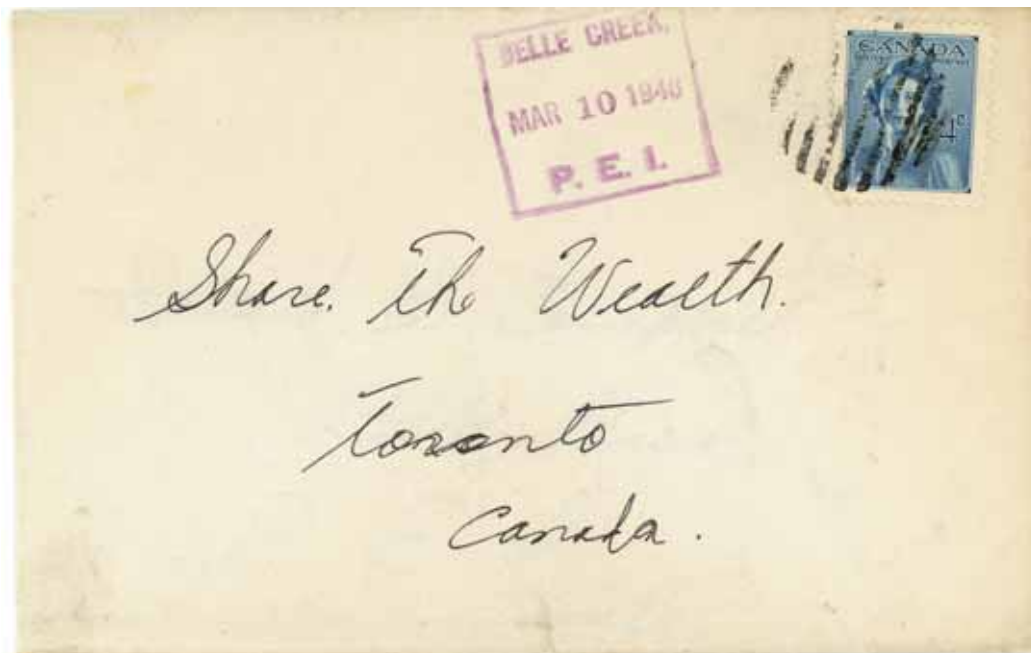 BELLE CREEK,
MAR 10 1948
P. E. I.
CANADA
4¢
Share. The Wealth.
Toronto
Canada.